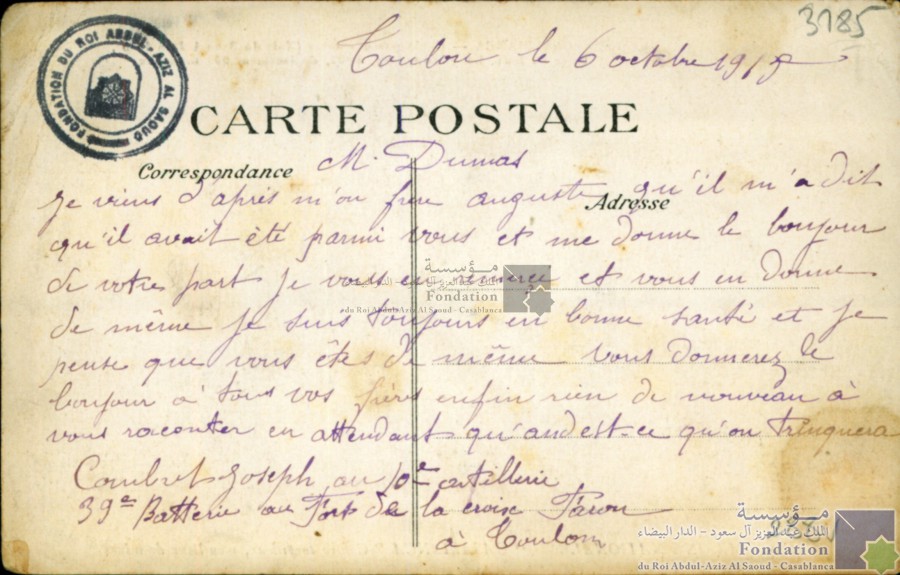 3185
FONDATION DU ROI ABDUL-AZIZ AL SAOUD
Toulon le 6 octobre 1915
CARTE POSTALE
Correspondance
M. Dumas
Adresse
Je viens d'après m'on frere auguste qu'il m'a dit
qu'il avait été parmi vous et me donne le bonjour
de votre part je vous en remerce et vous en donne
de même je suis toujours en bonne santé et je
pense que vous êtes de même vous donnerez le
bonjour à tous vos frères enfin rien de nouveau à
vous raconter en attendant qu'andest-ce qu'on trinquera
Combret Joseph au 10e artillerie
39e Batterie au Fort de la croix Faron
à Toulon
مؤسسة
الملك عبد العزيز آل سعود - الدار البيضاء
Fondation
du Roi Abdul-Aziz Al Saoud - Casablanca
مؤسسة
الملك عبد العزيز آل سعود - الدار البيضاء
Fondation
du Roi Abdul-Aziz Al Saoud - Casablanca